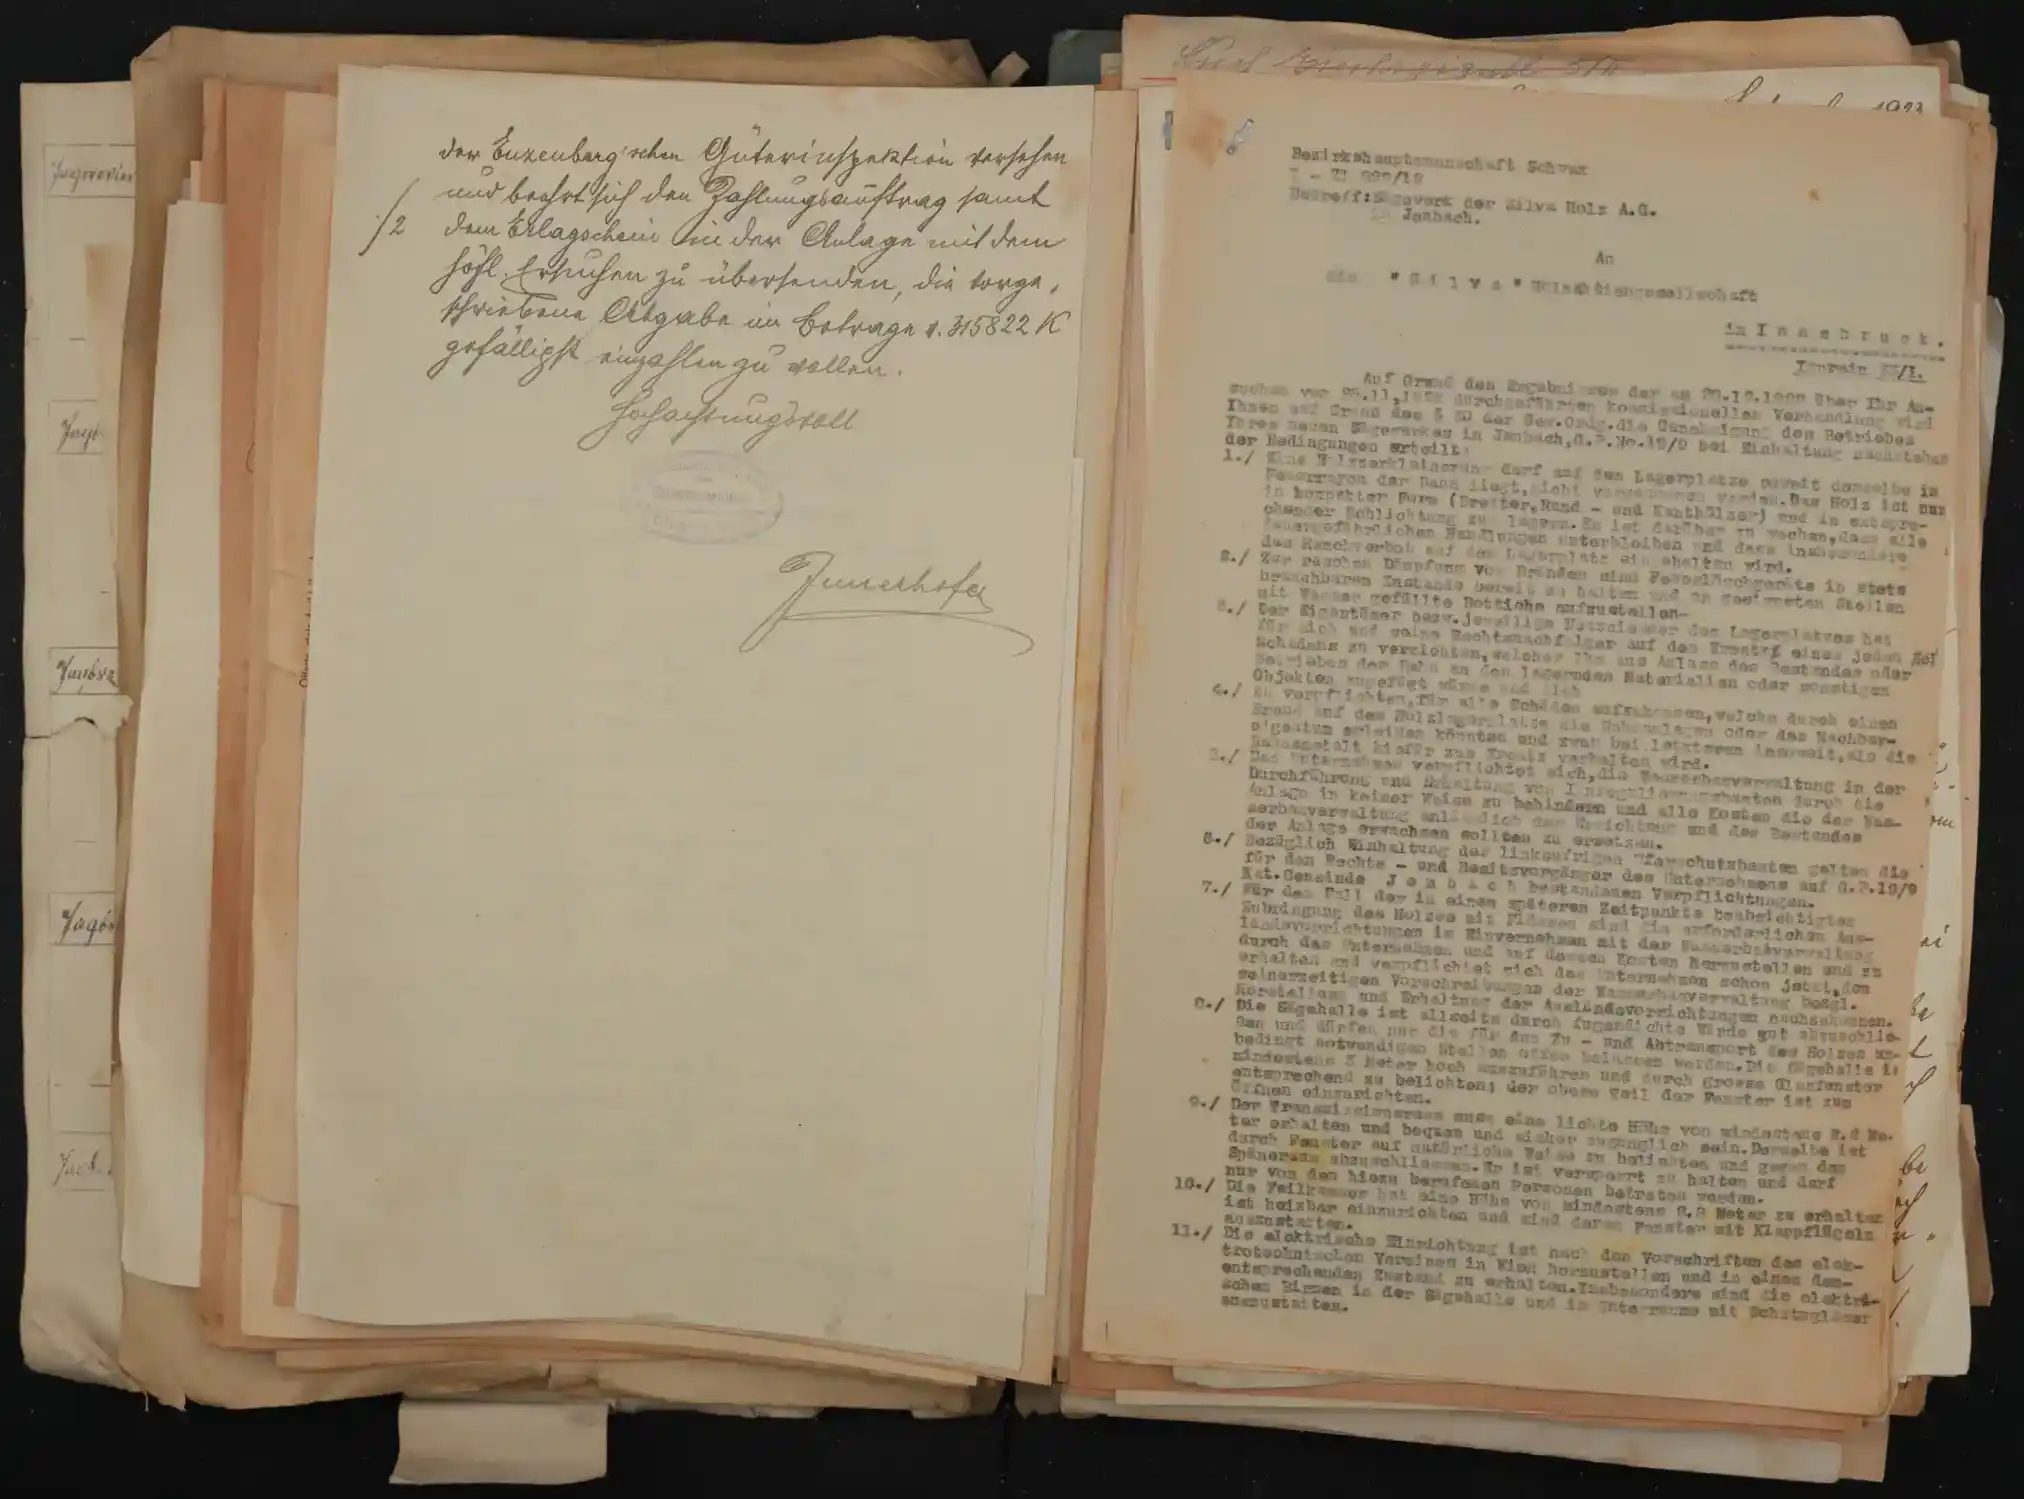 der Enzenberg'schen Güterinspektion versehen
und beehrt sich den Zahlungsauftrag samt
./2 dem Erlagschein in der Anlage mit dem
höfl. Ersuchen zu übersenden, die vorge-
schriebene Abgabe im Betrage v. 315822 K
gefälligst einzahlen zu wollen.
Hochachtungsvoll
Innerhofer
Jagdrevier
1923
Bezirkshauptmannschaft Schwaz
Betreff: Sägewerk der Silva Holz A.G.
in Jenbach.
An
die "S i l v a" Holzaktiengesellschaft
in I n n s b r u c k .
Auf Grund des Ergebnisses der am über Ihr An-
suchen vom durchgeführten kommissionellen Verhandlung wird
Ihnen auf Grund des § der Gew.Ordg. die Genehmigung des Betriebes
Ihres neuen Sägewerkes in Jenbach, G.P.No.18/9 bei Einhaltung nachstehen
der Bedingungen erteilt:
1./ Eine Holzzerkleinerung darf auf dem Lagerplatze soweit derselbe im
Feuerrayon der Bahn liegt, nicht vorgenommen werden. Das Holz ist nur
in kompakter Form (Bretter, Rund - und Kanthölzer) und in entspre-
chender Schlichtung zu lagern. Es ist darüber zu wachen, dass alle
feuergefährlichen Handlungen unterbleiben und dass insbesondere
das Rauchverbot auf dem Lagerplatz eingehalten wird.
2./ Zur raschen Dämpfung von Bränden sind Feuerlöschgeräte in stets
brauchbarem Zustande bereit zu halten und an geeigneten Stellen
mit Wasser gefüllte Bottiche aufzustellen-
3./ Der Eigentümer bezw. jeweilige Nutzniesser des Lagerplatzes hat
für sich und seine Rechtsnachfolger auf den Ersatz eines jeden
Schadens zu verzichten, welcher ihm aus Anlass des Bestandes oder
Betriebes der Bahn an den lagernden Materialien oder sonstigen
Objekten zugefügt würde und sich
4./ zu verpflichten, für alle Schäden aufzukommen, welche durch einen
Brand auf dem Holzlagerplatze die Bahnanlagen oder das Nachbar-
eigentum erleiden könnten und zwar bei letzterem insoweit, als die
Bahnanstalt hiefür zum Ersatz verhalten wird.
5./ Das Unternehmen verpflichtet sich, die Wasserbauverwaltung in der
Durchführung und Erhaltung von Innregulierungsbauten durch die
Anlage in keiner Weise zu behindern und alle Kosten die der Was-
serbauverwaltung anlässlich der Errichtung und des Bestandes
der Anlage erwachsen sollten zu ersetzen.
6./ Bezüglich Einhaltung der linksufrigen Uferschutzbauten gelten die
für den Rechts - und Besitzvorgänger des Unternehmens auf G.P.18/9
Kat.Gemeinde J e n b a c h bestandenen Verpflichtungen.
7./ Für den Fall der in einem späteren Zeitpunkte beabsichtigten
Zubringung des Holzes mit Flössen sind die erforderlichen Aus-
ländevorrichtungen im Einvernehmen mit der Wasserbauverwaltung
durch das Unternehmen und auf dessen Kosten herzustellen und zu
erhalten und verpflichtet sich das Unternehmen schon jetzt, den
seinerzeitigen Vorschreibungen der Wasserbauverwaltung bezgl.
Herstellung und Erhaltung der Ausländevorrichtungen nachzukommen.
8./ Die Sägehalle ist allseits durch fugendichte Wände gut abzuschlie-
ßen und dürfen nur die für den Zu - und Abtransport des Holzes un-
bedingt notwendigen Stellen offen belassen werden. Die Sägehalle is
mindestens 3 Meter hoch auszuführen und durch grosse Glasfenster
entsprechend zu belichten; der obere Teil der Fenster ist zum
Öffnen einzurichten.
9./ Der Transmissionsraum muss eine lichte Höhe von mindestens 2.2 Me-
ter erhalten und bequem und sicher zugänglich sein. Derselbe ist
durch Fenster auf natürliche Weise zu belichten und gegen den
Späneraum abzuschliessen. Er ist versperrt zu halten und darf
nur von den hiezu berufenen Personen betreten werden.
10./ Die Feilkammer hat eine Höhe von mindestens 2.8 Meter zu erhalten
ist heizbar einzurichten und sind deren Fenster mit Klappflügeln
auszustatten.
11./ Die elektrische Einrichtung ist nach den Vorschriften des elek-
trotechnischen Vereines in Wien herzustellen und in einem dem-
entsprechenden Zustand zu erhalten. Insbesondere sind die elektri-
schen Birnen in der Sägehalle und im Unterraume mit Schutzgläser
auszustatten.